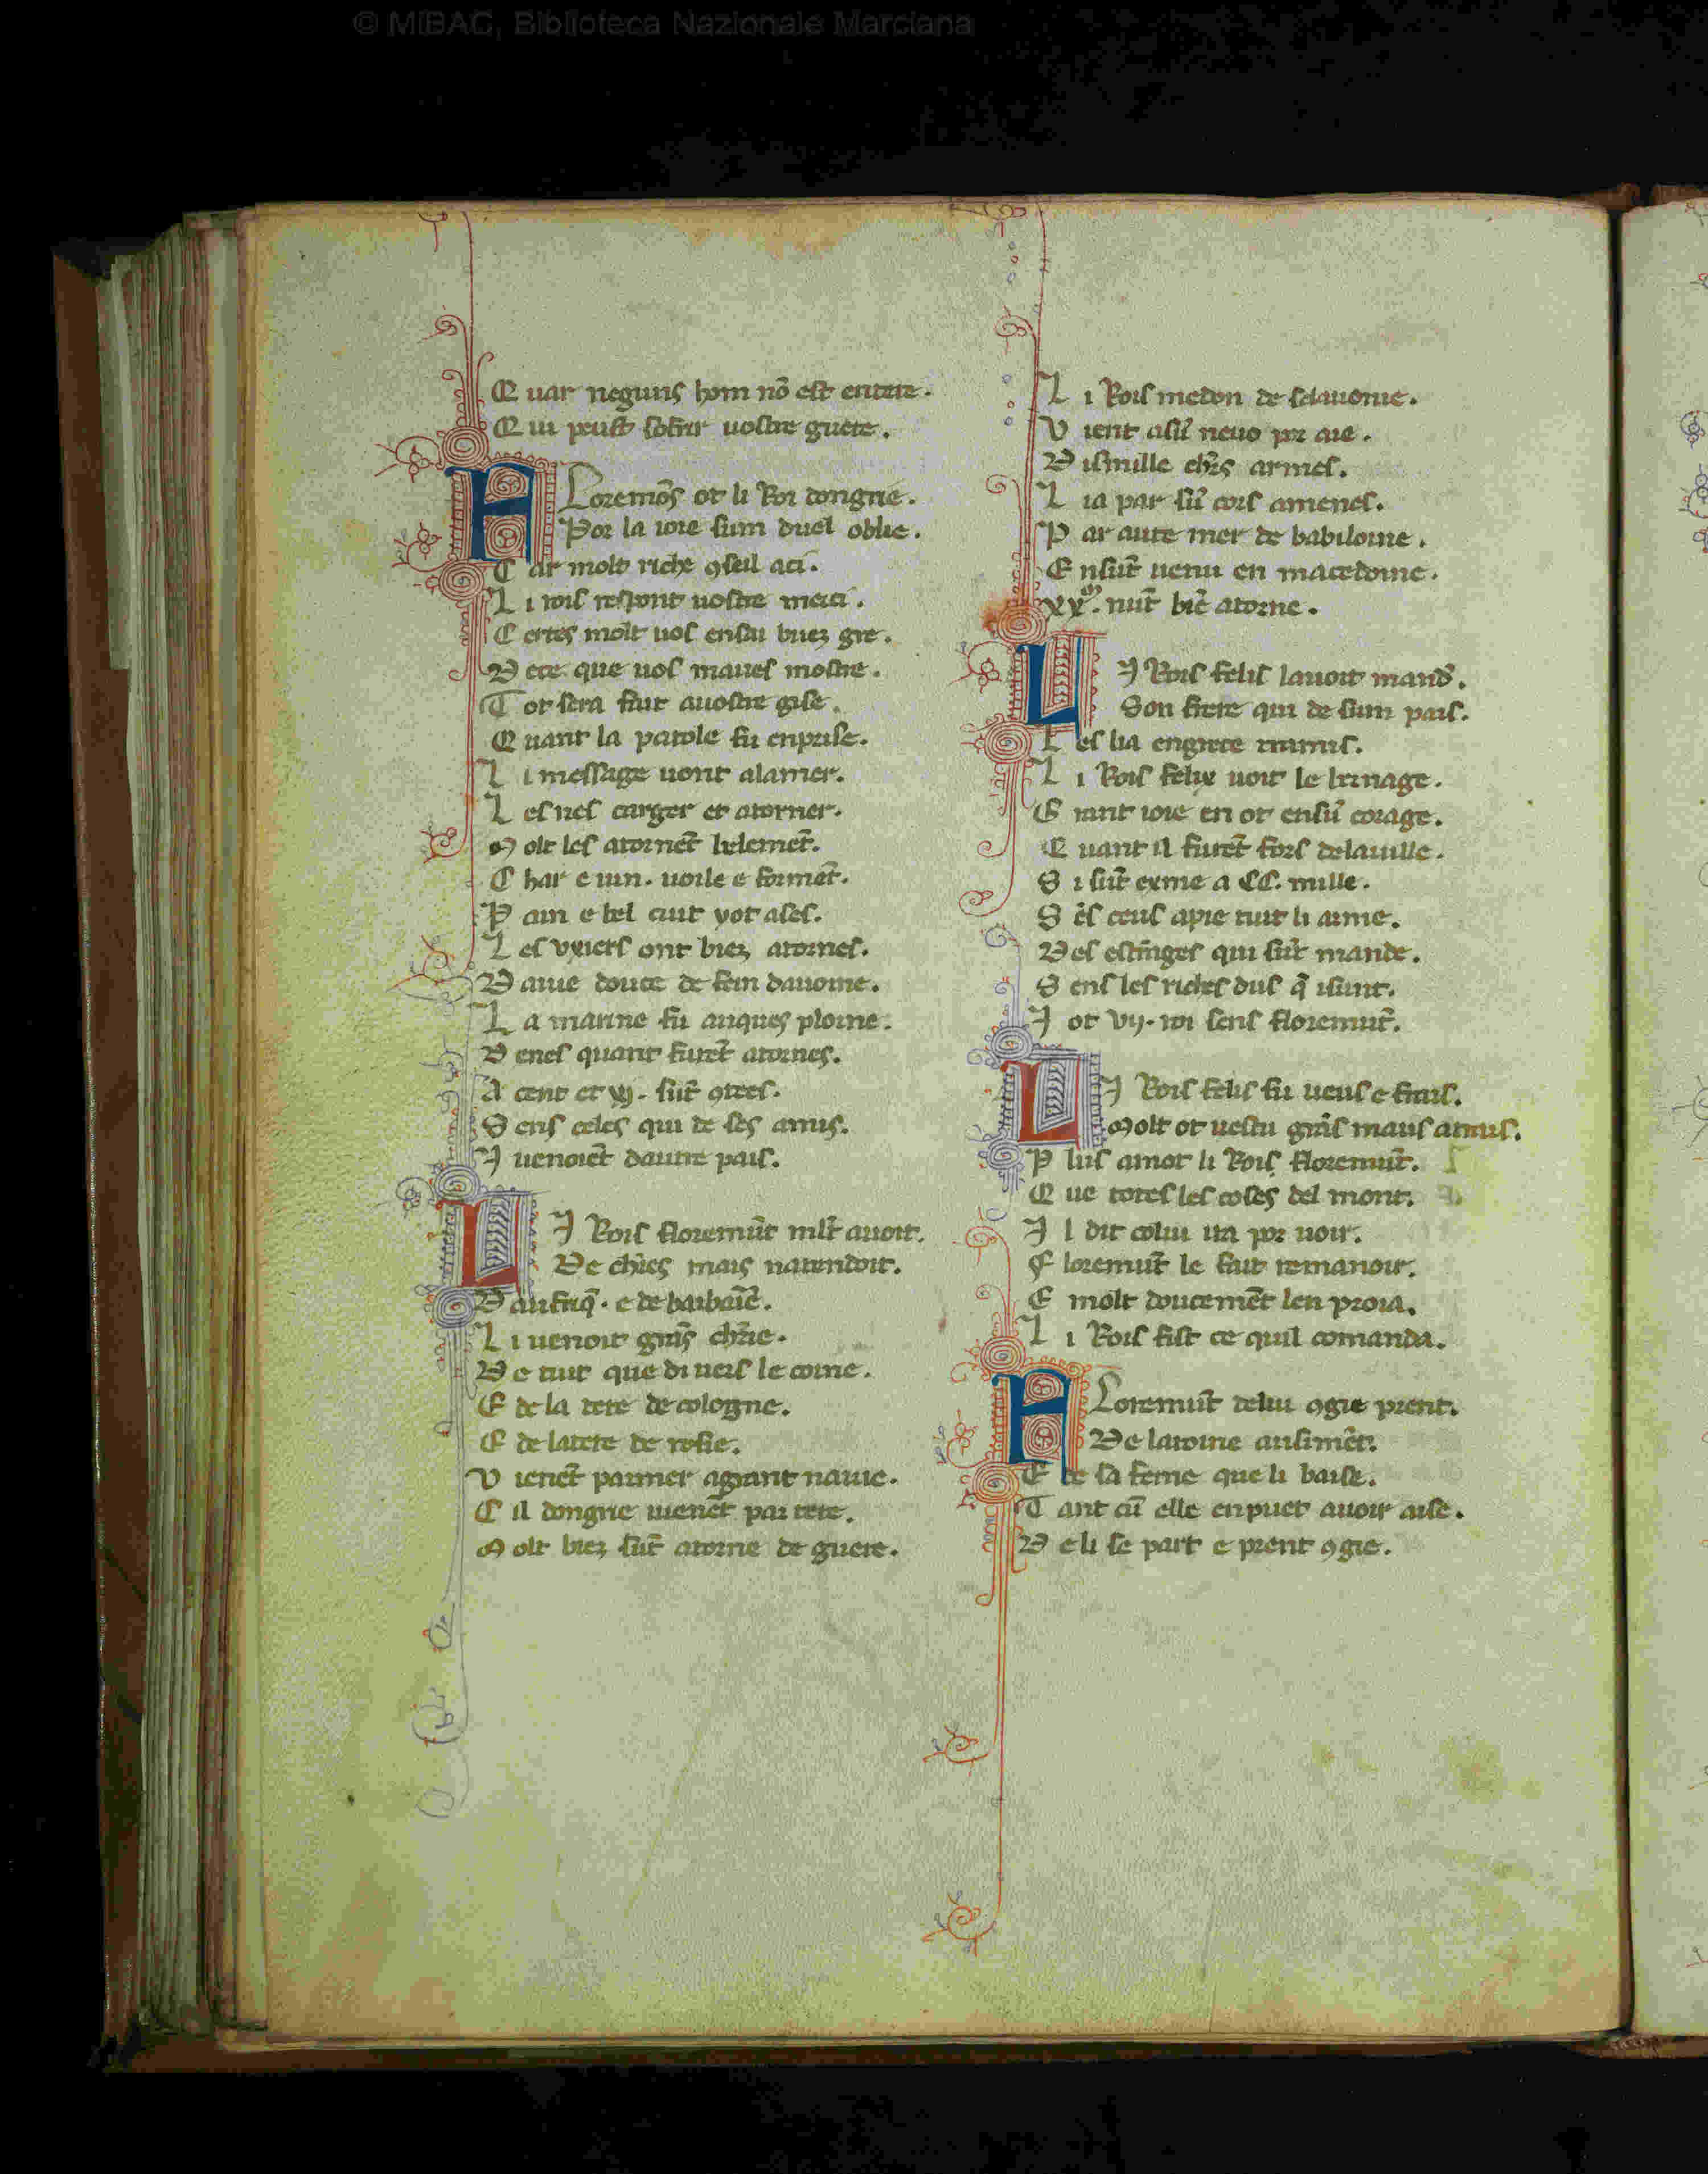 © MiBAC, Biblioteca Nazionale Marciana
Q uar neguns hom nō est en tere.
Q ui peust sofrir uostre guere.
F Loremōs ot li Roi dongrie.
Por la ioie sum duel oblie.
C ar molt riche ꝯseil aci.
L i rois respont uostre merci.
C ertes molt uos ensai buez gre.
D ece que uos maues mostre.
T ot sera fait auostre gise.
Q uant la parole fu enprise.
L i message uont alamer.
L es nes carger et atorner.
M olt les atornēt belemēt.
C har e uin. uoile e formēt.
P ain e bel cuit yot ases.
L es vxiers ont biez atornes.
D aiue douce de fein dauoine.
L a marine fu auques ploine.
D enes quant furēt atornes.
A cent et xij. sūt ꝯtees.
S ens celes qui de ses amis.
I uenoiēt dautre pais.
L I Rois floremūt mlt̄ auoit.
De chr̄es mais natendoit.
D aufriq̄. e de barbarīe.
L i uenoit grās chr̄ie.
D e tuit que di uers le come.
E de la tere de cologne.
E de latere de rosie.
V ienēt parmer agrant nauie.
C il dongrie uienēt par tere.
M olt biez sūt atorne de guere.
L i Rois medon de sclauonie.
V ient asū neuo por aie.
D ismille chr̄s armes.
L ia par sū cors amenes.
P ar aute mer de babiloine.
E nsūt uenu en macedoine.
xx.ᵐ nūt biē atorne.
L I Rois felis lauoit mand̄.
Son frere qui de sum pais.
L es lia engrece tramis.
L i Rois felix uoit le brnage.
G rant ioie en ot ensū corage.
Q uant il furēt fors delauille.
S i sūt exme a CC. mille.
S ēs ceus apie tuit li arme.
Des estrāges qui sūt mande.
S ens les riches dus q̄ isunt.
I ot vij. roi sens floremūt.
L I Rois felis fu ueus e frais.
Molt ot uestu grās maus atrais.
P lus amot li Rois floremūt.
Q ue totes les coses del mont.
I l dit colui ira por uoir.
F loremūt le fait remanoir.
E molt doucemēt len proia.
L i Rois fist ce quil comanda.
F Loremūt delui ꝯgie prent.
De laroine ausimēt.
E de sa feme que li baise.
T ant cū elle enpuet auoir aise.
D e li se part e prent ꝯgie.